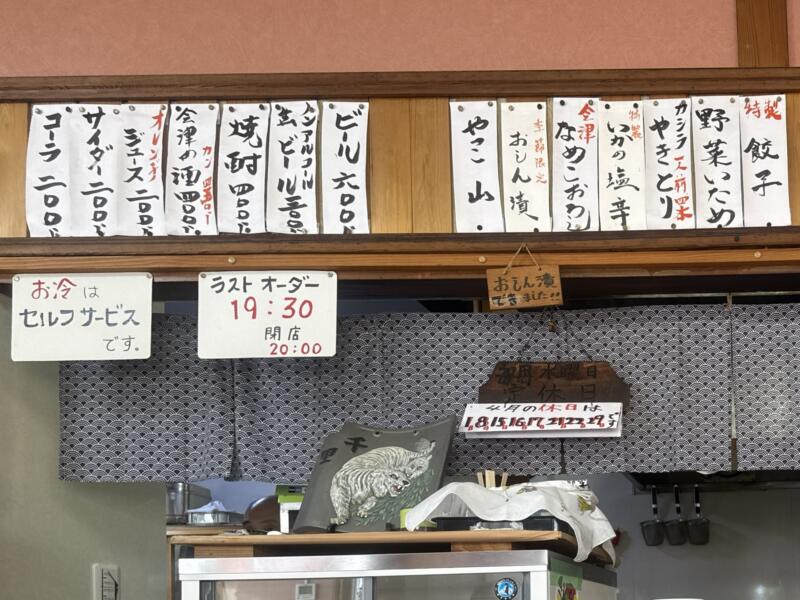 特製 餃子
野菜いため
カシラ
やきとり 一人前四本
特製
いかの塩辛
会津
なめこおろし
季節限定
おしん漬
やこ山
ビール 六〇〇
ノンアルコール
ビール 三〇〇
焼酎 四〇〇
会津の酒 四〇〇
カン
オレンジ
ジュース 二〇〇
サイダー 二〇〇
コーラ 二〇〇
お冷は
セルフサービス
です。
ラストオーダー
19:30
閉店
20:00
おしん漬
できました!!
毎週水曜日
定休日
4月の休日は
1,8,15,16,17,21,22,29です
千里